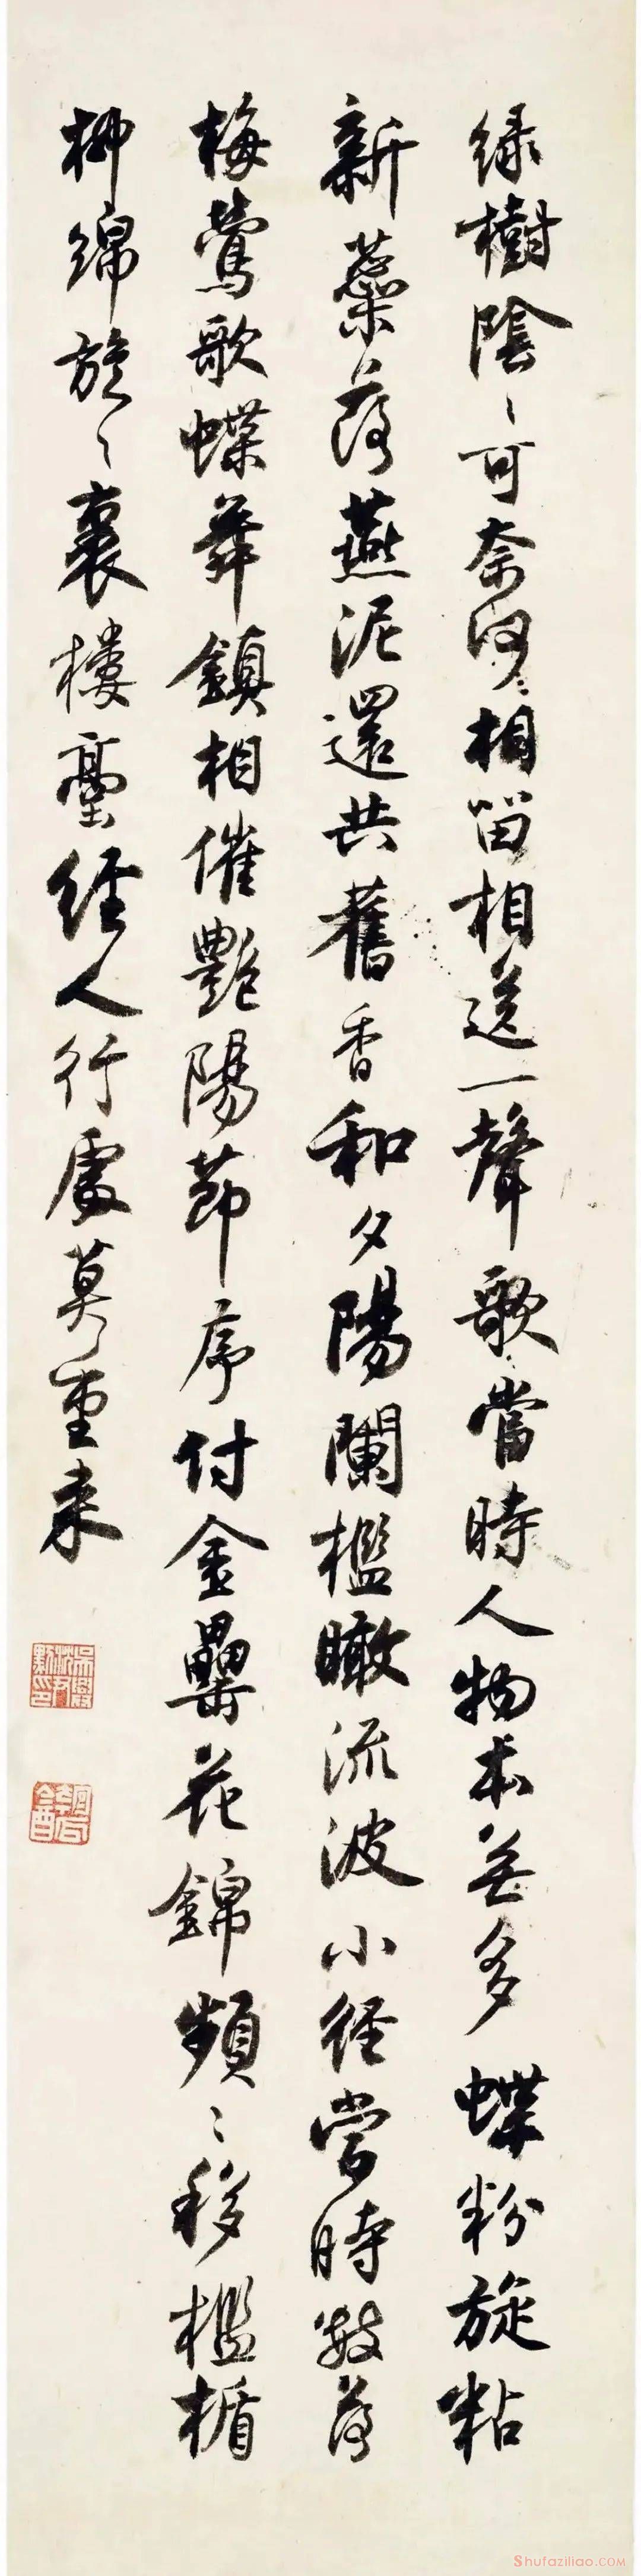 绿樹陰〻可奈何〻相留相送一聲歌當時人物本無多蝶粉旋粘
新蘂落燕泥還共舊香和夕陽闌檻瞰流波小徑當時數落
梅鶯歌蝶舞鎮相催艷陽節序付金罍花錦頻〻移檻楯
柳綿旋〻裹樓臺經人行處莫重来
吳興沈尹默印
匏瓜
Shufaziliao.COM